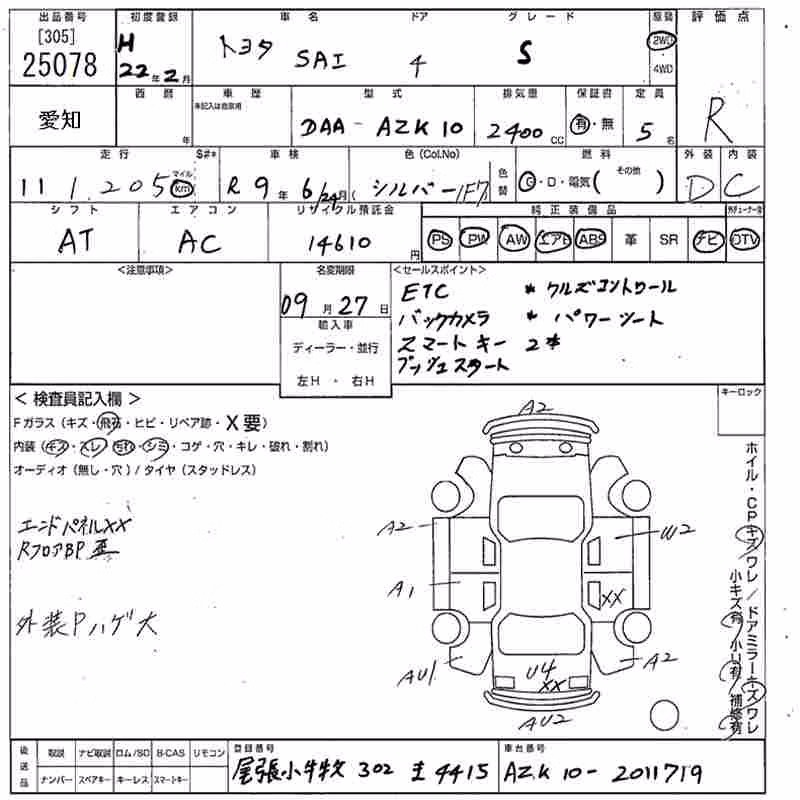 出品番号 初度登録 車名 ドア グレード 車歴 評価点
[305] H トヨタ SAI 4 S 2WD R
25078 22年2月 4WD
西暦 車歴 型式 排気量 保証書 定員
愛知 年 未記入は自家用 DAA-AZK10 2400CC 有・無 5名
走行 S#* 車検 色(Col.No) 燃料 外装 内装
111,205 マイル km R9年6/24月 シルバー 1F7 色替 G・D・電気( その他 ) D C
シフト エアコン リサイクル預託金 純正装備品
AT AC 14610円 PS PW AW エアB ABS 革 SR ナビ TV
<注意事項> 名変期限 <セールスポイント>
09月27日 ETC * クルズコントロール
輸入車 バックカメラ * パワーシート
ディーラー・並行 スマートキー 2本
左H ・ 右H プッシュスタート
< 検査員記入欄 > キーロック
Fガラス (キズ・飛石・ヒビ・リペア跡・X要)
内装 (キズ・スレ・汚れ・シミ・コゲ・穴・キレ・破れ・割れ)
オーディオ (無し・穴) / タイヤ (スタッドレス)
エンドパネルXX
RフロアBP歪
外装Pハゲ大
A2
A2 W2
A1 XX
AU1 U4 A2
XX
AU2
ホイル・CPキズワレ/ドアミラーキズワレ
小キズ有 小U有 補修有
後送品 取説 ナビ取説 ロム/SD B-CAS リモコン 登録番号 車台番号
ナンバー スペアキー キーレス スマートキー 尾張小牧 302 4415 AZK10-2011719